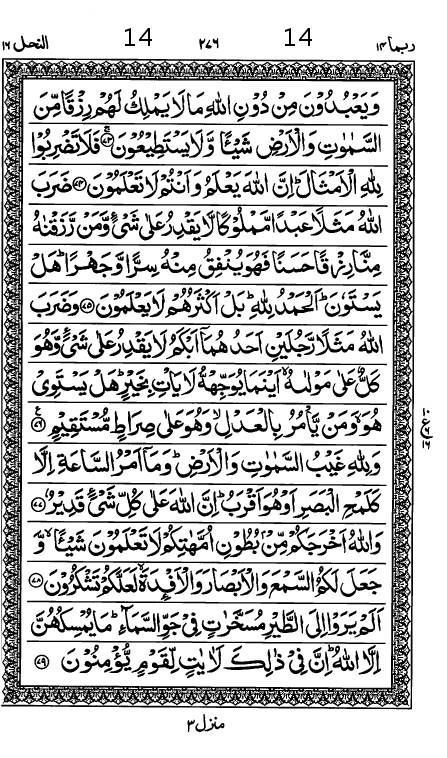 ربما ١٤ 14 ٢٧٦ 14 النحل ١٦
وَيَعْبُدُوْنَ مِنْ دُوْنِ اللّٰهِ مَا لَا يَمْلِكُ لَهُمْ رِزْقًا مِّنَ
السَّمٰوٰتِ وَالْاَرْضِ شَيْـًٔا وَّلَا يَسْتَطِيْعُوْنَ ۚ﴿٧٣﴾ فَلَا تَضْرِبُوْا
لِلّٰهِ الْاَمْثَالَ ؕ اِنَّ اللّٰهَ يَعْلَمُ وَاَنْتُمْ لَا تَعْلَمُوْنَ ﴿٧٤﴾ ضَرَبَ
اللّٰهُ مَثَلًا عَبْدًا مَّمْلُوْكًا لَّا يَقْدِرُ عَلٰى شَيْءٍ وَّمَنْ رَّزَقْنٰهُ
مِنَّا رِزْقًا حَسَنًا فَهُوَ يُنْفِقُ مِنْهُ سِرًّا وَّجَهْرًا ؕ هَلْ
يَسْتَوٗنَ ؕ اَلْحَمْدُ لِلّٰهِ ؕ بَلْ اَكْثَرُهُمْ لَا يَعْلَمُوْنَ ﴿٧٥﴾ وَضَرَبَ
اللّٰهُ مَثَلًا رَّجُلَيْنِ اَحَدُهُمَاۤ اَبْكَمُ لَا يَقْدِرُ عَلٰى شَيْءٍ وَّهُوَ
كَلٌّ عَلٰى مَوْلٰىهُ ۙ اَيْنَمَا يُوَجِّهْهُّ لَا يَاْتِ بِخَيْرٍ ؕ هَلْ يَسْتَوِيْ
هُوَ ۙ وَمَنْ يَّاْمُرُ بِالْعَدْلِ ۙ وَهُوَ عَلٰى صِرَاطٍ مُّسْتَقِيْمٍ ﴿٧٦﴾
وَلِلّٰهِ غَيْبُ السَّمٰوٰتِ وَالْاَرْضِ ؕ وَمَاۤ اَمْرُ السَّاعَةِ اِلَّا
كَلَمْحِ الْبَصَرِ اَوْ هُوَ اَقْرَبُ ؕ اِنَّ اللّٰهَ عَلٰى كُلِّ شَيْءٍ قَدِيْرٌ ﴿٧٧﴾
وَاللّٰهُ اَخْرَجَكُمْ مِّنْۢ بُطُوْنِ اُمَّهٰتِكُمْ لَا تَعْلَمُوْنَ شَيْـًٔا ۙ وَّ
جَعَلَ لَكُمُ السَّمْعَ وَالْاَبْصَارَ وَالْاَفْـِٕدَةَ ۙ لَعَلَّكُمْ تَشْكُرُوْنَ ﴿٧٨﴾
اَلَمْ يَرَوْا اِلَى الطَّيْرِ مُسَخَّرٰتٍ فِيْ جَوِّ السَّمَآءِ ؕ مَا يُمْسِكُهُنَّ
اِلَّا اللّٰهُ ؕ اِنَّ فِيْ ذٰلِكَ لَاٰيٰتٍ لِّقَوْمٍ يُّؤْمِنُوْنَ ﴿٧٩﴾
منزل ٣